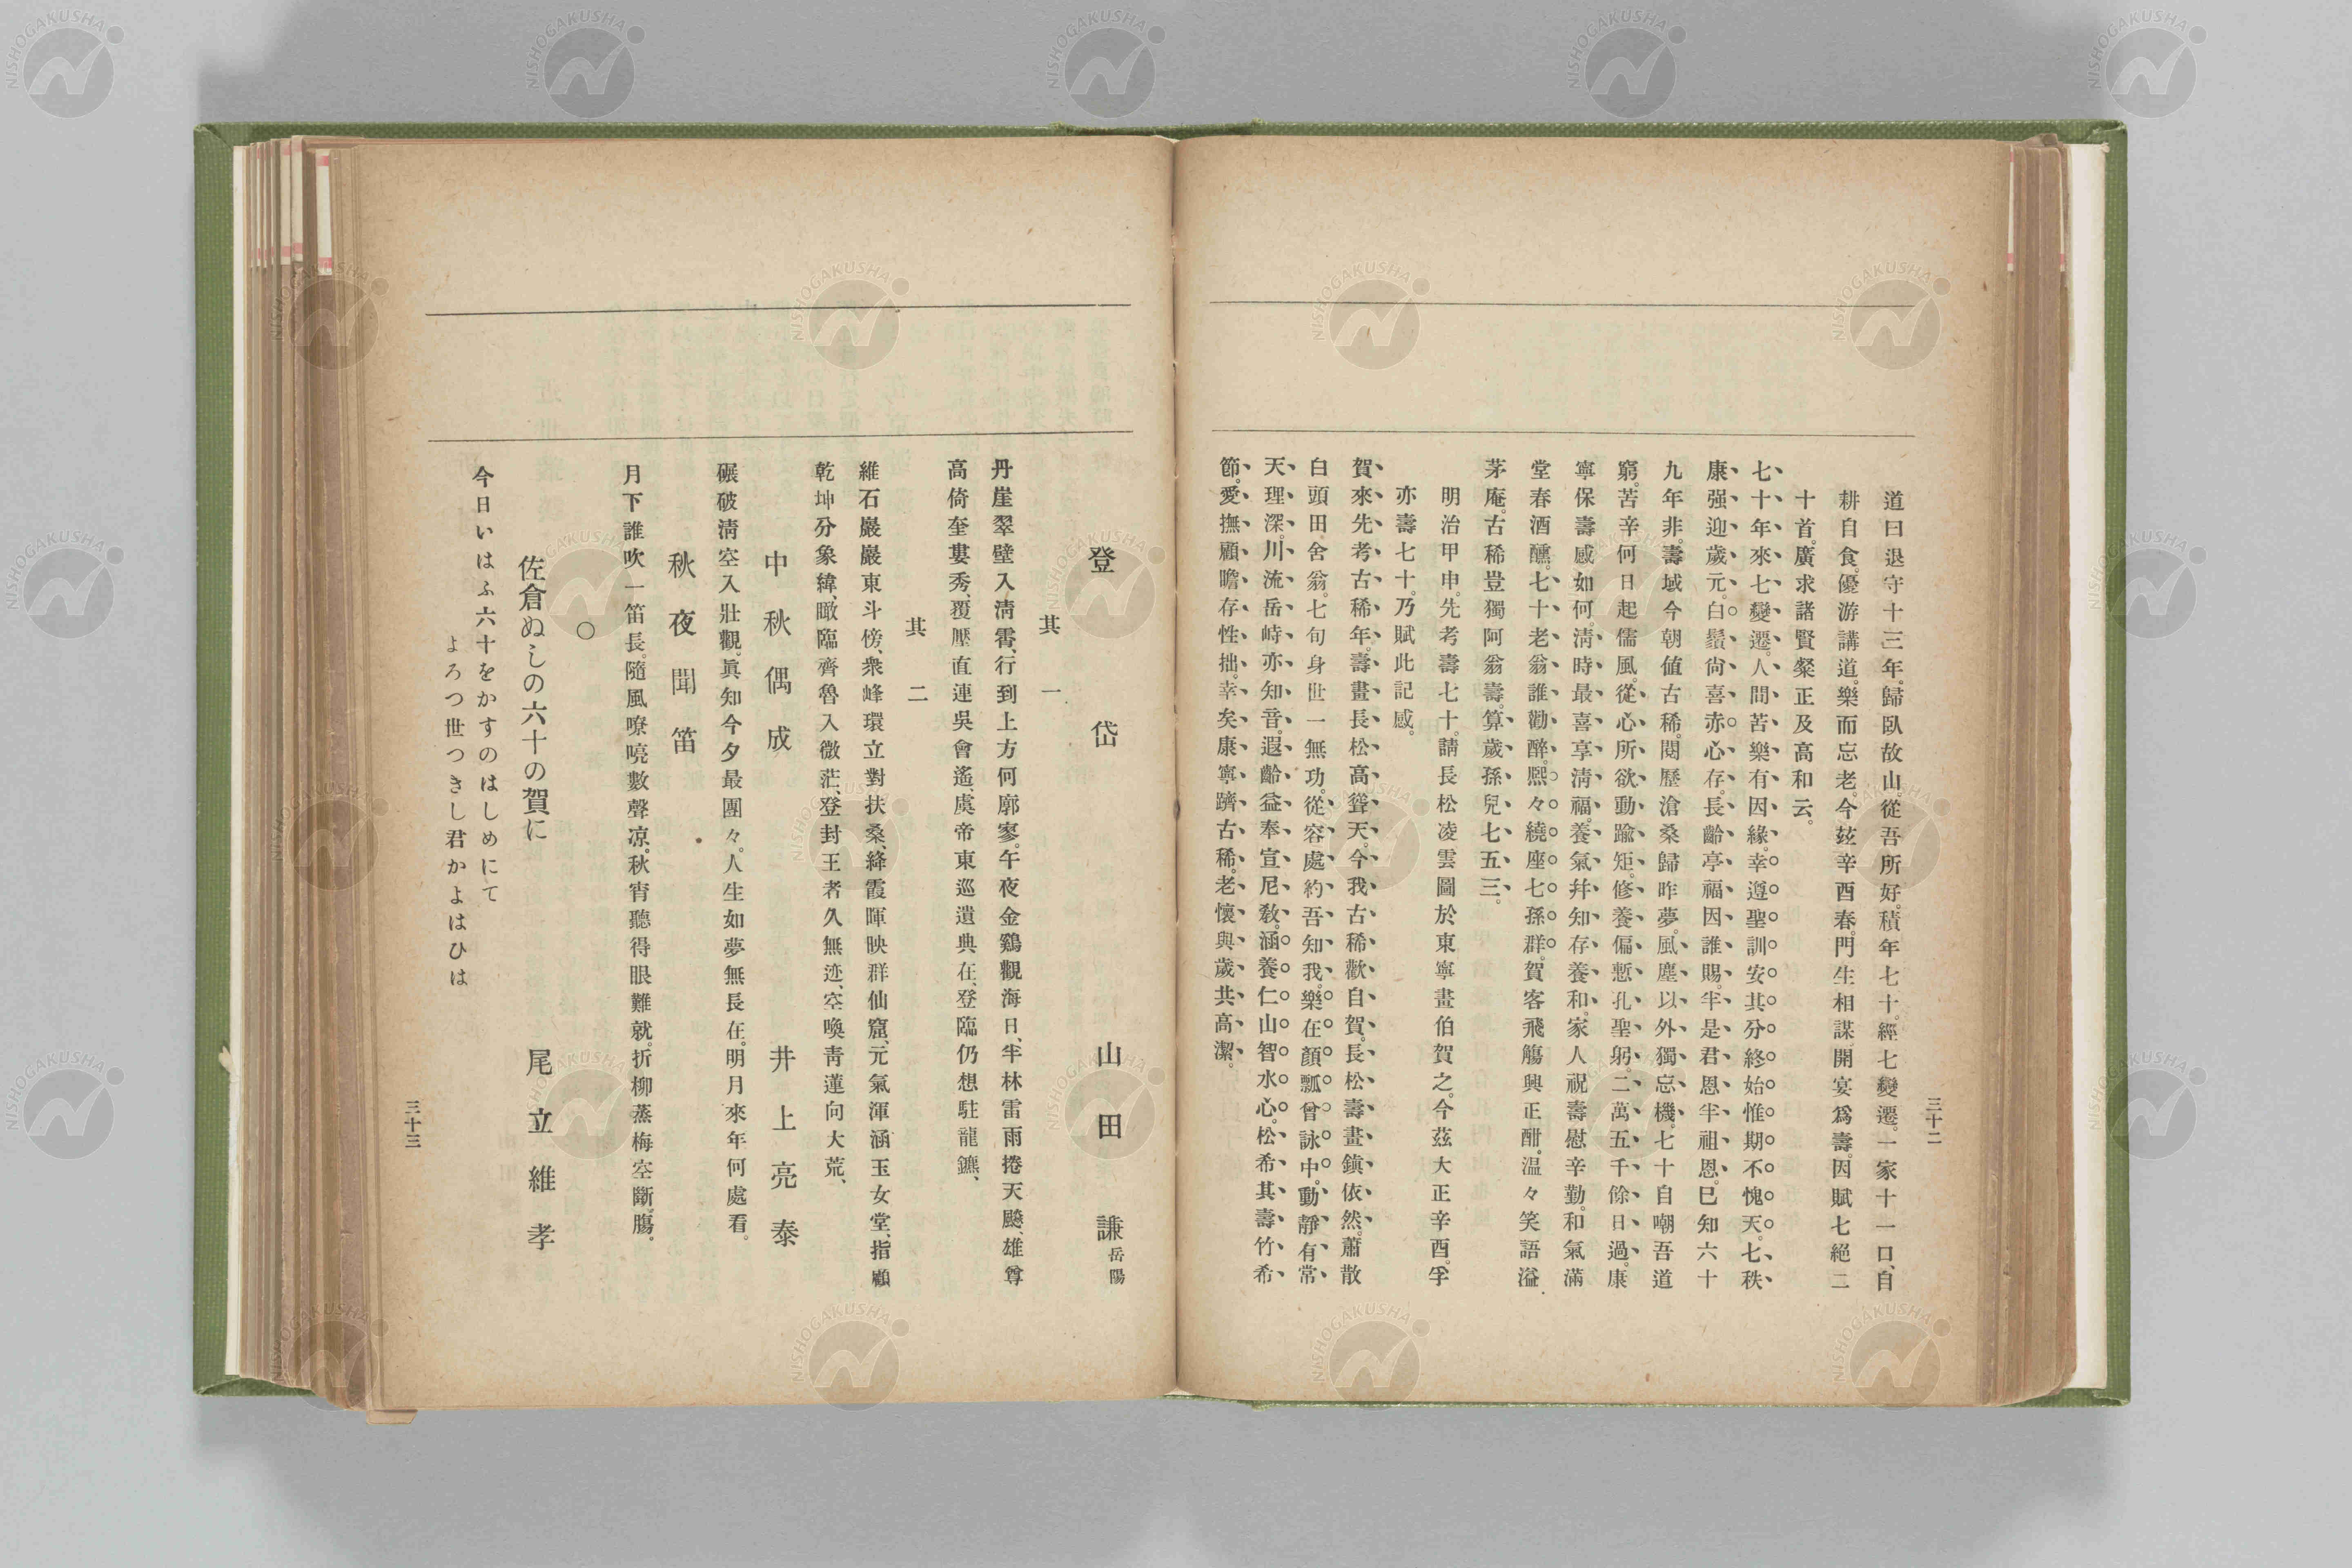 道曰退守十三年。歸臥故山。從吾所好。積年七十。經七變遷。一家十一口、自
耕自食。優游講道。樂而忘老。今玆辛酉春。門生相謀。開宴爲壽。因賦七絕二
十首。廣求諸賢粲正及高和云。
七十年來七變遷。人間苦樂有因緣。幸遵聖訓安其分。終始惟期不愧天。七秩
康强迎歲元。白鬚尙喜赤心存。長齡亭福因誰賜。半是君恩半祖恩。已知六十
九年非。壽域今朝値古稀。閱歷滄桑歸昨夢。風塵以外獨忘機。七十自嘲吾道
窮。苦辛何日起儒風。從心所欲動踰矩。修養偏慙孔聖躬。二萬五千餘日過。康
寧保壽感如何。淸時最喜享淸福。養氣幷知存養和。家人祝壽慰辛勤。和氣滿
堂春酒醺。七十老翁誰勸醉。熙々繞座七孫群。賀客飛觴興正酣。溫々笑語溢
茅庵。古稀豈獨阿翁壽。算歲孫兒七五三。
明治甲申。先考壽七十。請長松凌雲圖於東寧畫伯賀之。今茲大正辛酉。孚
亦壽七十。乃賦此記感。
賀來先考古稀年。壽畫長松高聳天。今我古稀歡自賀。長松壽畫鎭依然。蕭散
白頭田舍翁。七旬身世一無功。從容處約吾知我。樂在顏瓢曾詠中。動靜有常
天理深。川流岳峙亦知音。遐齡益奉宣尼敎。涵養仁山智水心。松希其壽竹希
節。愛撫顧瞻存性拙。幸矣康寧躋古稀。老懷與歲共高潔。
三十二
登岱　山田謙岳陽
其一
丹崖翠壁入淸霄、行到上方何廓寥。午夜金鷄觀海日、半林雷雨捲天飇、雄尊
高倚奎婁秀、覆壓直連吳會遙、虞帝東巡遺典在、登臨仍想駐龍鑣、
其二
維石巖巖東斗傍、衆峰環立對扶桑、絳霞暉映群仙窟、元氣渾涵玉女堂、指顧
乾坤分象緯、瞰臨齊魯入微茫、登封王者久無迹、空喚靑蓮向大荒、
中秋偶成　井上亮泰
碾破淸空入壯觀。眞知今夕最團々。人生如夢無長在。明月來年何處看。
秋夜聞笛
月下誰吹一笛長。隨風嘹喨數聲凉。秋宵聽得眼難就。折柳蒸梅空斷膓。
○
佐倉ぬしの六十の賀に　尾立維孝
今日いはふ六十をかすのはしめにて
よろつ世つきし君かよはひは
三十三